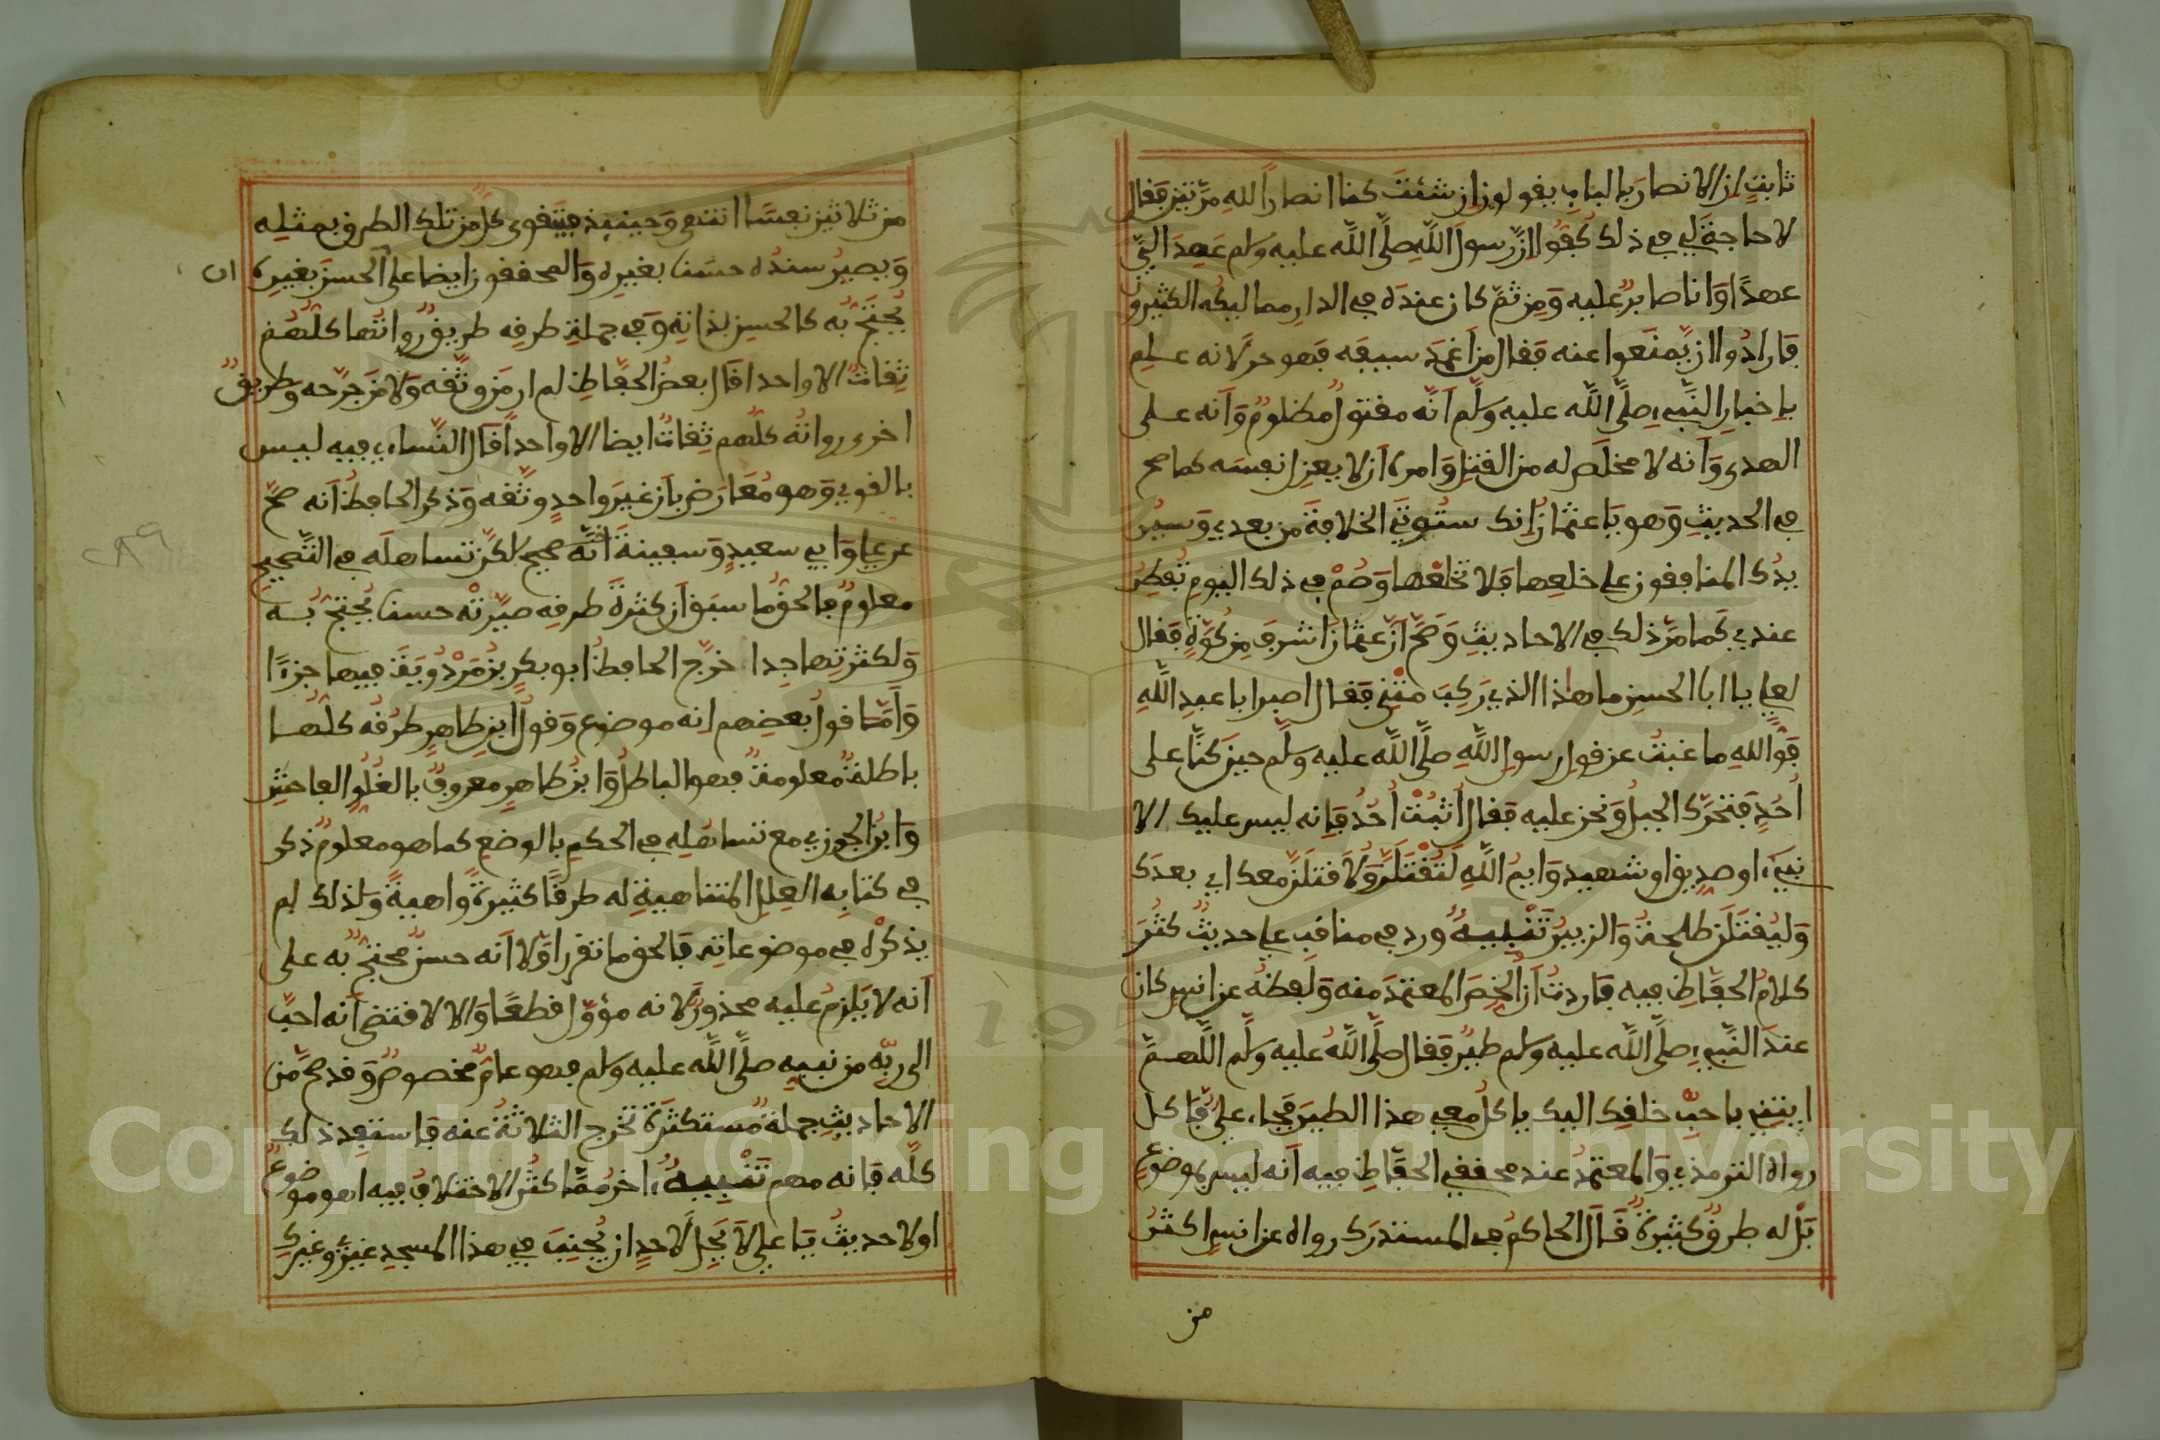 ثابت ان الانصار بالباب يقولون ان شئت كنا انصارا لله مرتين فقال
لا حاجة لي في ذلك كفوا ان رسول الله صلى الله عليه وسلم عهد الي
عهدا وانا صابر عليه ومن ثم كان عنده في الدار مماليكه الكثيرون
فارادوا ان يمنعوا عنه فقال من اغمد سيفه فهو حر لانه علم
باخبار النبي صلى الله عليه وسلم انه مقتول مظلوم وانه على
الهدى وانه لا مخلص له من القتل وامره ان لا يعزل نفسه كما صح
في الحديث وهو يا عثمان انك ستوتى الخلافة من بعدي وسير
يدك المنافقون على خلعها فلا تخلعها وصم في ذلك اليوم تفطر
عندي كما مر ذلك في الاحاديث وصح ان عثمان اشرف من كوة فقال
لعلي يا ابا الحسن ما هذا الذي ركب متني فقال اصبر ابا عبد الله
فوالله ما غبت عن قول رسول الله صلى الله عليه وسلم حين كنا على
احد فتحرك الجبل ونحن عليه فقال اثبت احد فانه ليس عليك الا
نبي او صديق او شهيد وايم الله لتقتلن ولاقتلن معك اي بعدك
وليقتلن طلحة والزبير تنبيه ورد في مناقب علي حديث كثر
كلام الحفاظ فيه فاردت ان الخص المعتمد منه ولفظه عن انس كان
عند النبي صلى الله عليه وسلم طير فقال صلى الله عليه وسلم اللهم
ايتني باحب خلقك اليك ياكل معي هذا الطير فجاء علي فاكل
رواه الترمذي والمعتمد عند محققي الحفاظ فيه انه ليس بموضوع
بل له طرق كثيرة قال الحاكم في المستدرك رواه عن انس اكثر
من
من ثلاثين نفسا انتهى وحينئذ فيتقوى كل من تلك الطرق بمثله
ويصير سنده حسنا بغيره والمحققون ايضا على الحسن بغيره ان
يحتج به كالحسن لذاته وفي جملة طرقه طريق رواتها كلهم
ثقات الا واحدا قال بعض الحفاظ لم ار من وثقه ولا من جرحه وطريق
اخرى رواته كلهم ثقات ايضا الا واحدا قال النساءي فيه ليس
بالقوي وهو معارض بان غير واحد وثقه وذكر الحافظ انه صح
عن علي وابي سعيد وسفينة انه صحيح لكن تساهله في التصحيح
معلوم فالحق ما سبق ان كثرة طرقه صيرته حسنا يحتج به
ولكثرتها جدا خرج الحافظ ابو بكر بن مردويه فيها جزءا
واما قول بعضهم انه موضوع وقول ابن طاهر طرقه كلها
باطلة معلومة فهو الباطل وابن طاهر معروف بالغلو الفاحش
وابن الجوزي مع تساهله في الحكم بالوضع كما هو معلوم ذكر
في كتابه العلل المتناهية له طرقا كثيرة واهية ولذلك لم
يذكره في موضوعاته فالحق ما تقرر اولا انه حسن محتج به على
انه لا يلزم عليه محذور لانه مؤول قطعا والا لاقتضى انه احب
الى ربه من نبيه صلى الله عليه وسلم فهو عام مخصوص وقد صح من
الاحاديث جملة مستكثرة تخرج الثلاثة عنه فاستفد ذلك
كله فانه مهم تنبيه اخر مما كثر الاختلاف فيه اهو موضوع
او لا حديث يا علي لا يحل لاحد ان يجنب في هذا المسجد غيري وغيرك